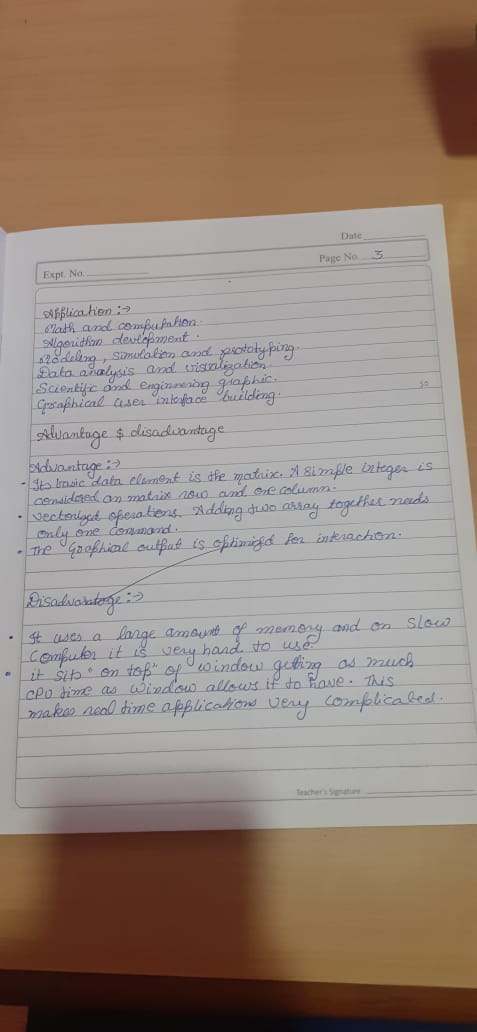 Date
Page No. 3
Expt. No.
Application :→
Math and computation.
Algorithm devlopment.
Modeling, simulation and prototyping.
Data analysis and visulization.
Scientific and enginnering graphic.
Graphical user interface building.
Advantage $ disadvantage
Advantage :→
- Its basic data element is the matrix. A simple integer is
considered an matrix row and one column.
• vectorized operations. Adding two array together needs
only one command.
• The Graphical output is optimized for interaction.
Disadvantage :→
• It uses a large amount of memory and on slow
Computer it is very hard to use.
• it sits "on top" of window getting as much
CPU time as window allows it to have. This
makes real time applications very complicated.
Teacher's Signature